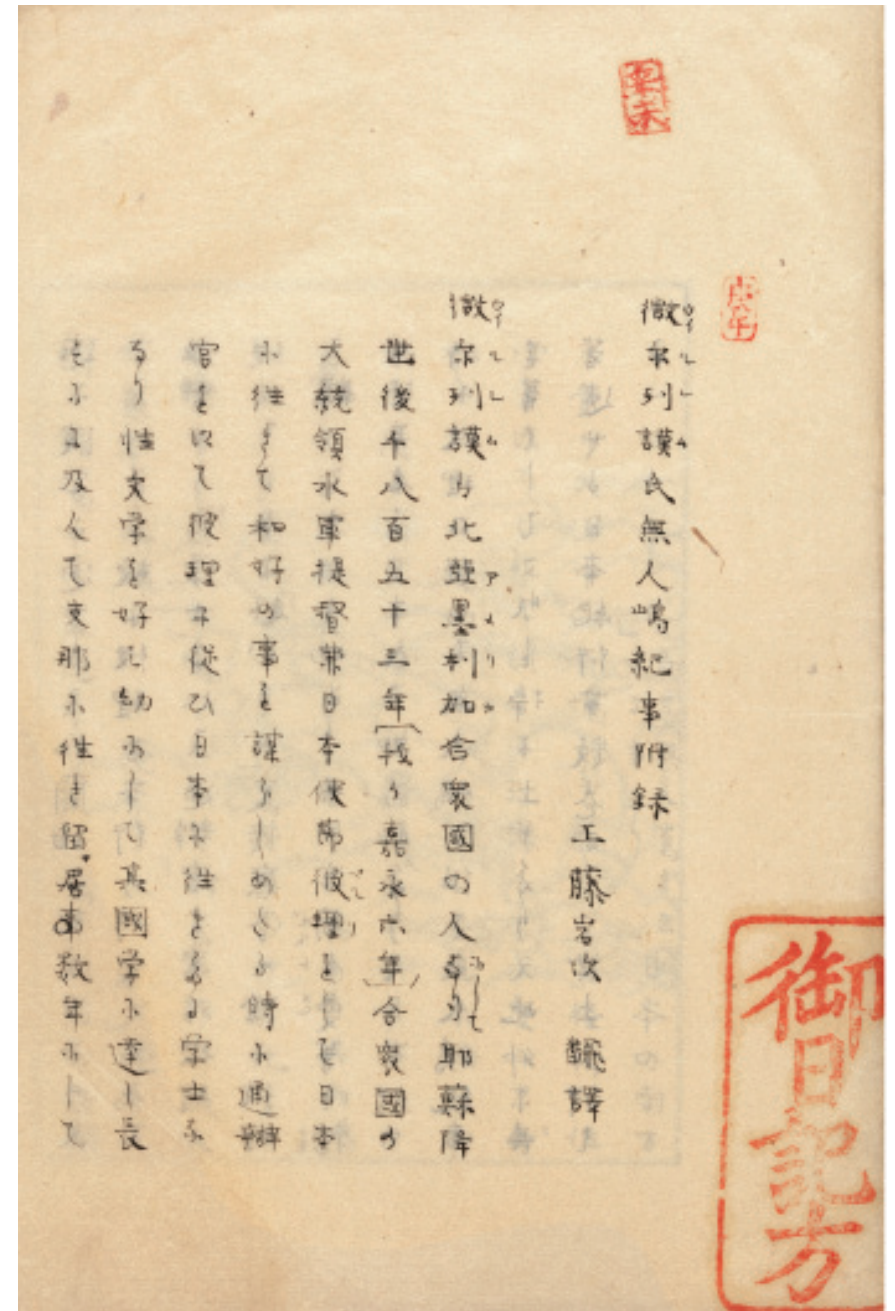 庚午
微尓列謨氏無人嶋紀事附録
ウイルレム
工藤岩次 飜譯
微尓列謨ハ北亜墨利加合衆國の人
ウイルレム
アメリカ
にして
耶蘇降
世後千八百五十三年我カ嘉永六年合衆國の
大統領水軍提督兼日本使節彼理をして日本
ペリ
に往きて和好の事を謀らしめたる時に通辯
官を以て彼理に従ひ日本に往きたる学士な
るり性文学を好て幼にして其國学に達し長
するに及んて支那に往き留居事数年にして
御日記方